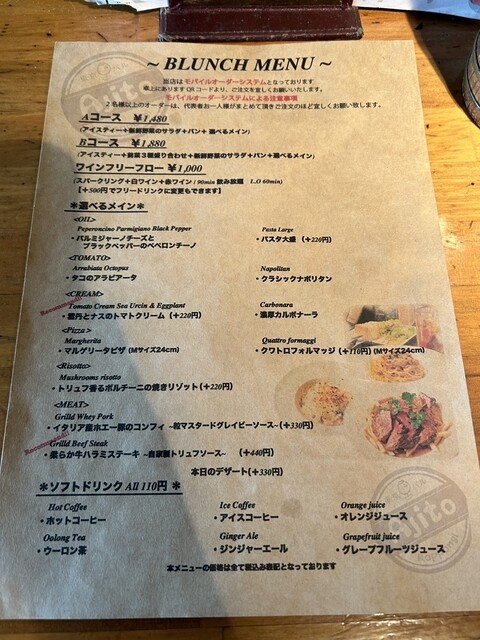 ~ BLUNCH MENU ~
当店はモバイルオーダーシステムとなっております
卓上にありますQRコードより、ご注文を宜しくお願いいたします。
モバイルオーダーシステムによる注意事項
2名様以上のオーダーは、代表者お一人様がまとめて頂きご注文のほど宜しくお願い致します。
Aコース ￥1,480
(アイスティー+新鮮野菜のサラダ+パン+ 選べるメイン)
Bコース ￥1,880
(アイスティー+前菜3種盛り合わせ+新鮮野菜のサラダ+パン+選べるメイン)
ワインフリーフロー ￥1,000
(スパークリング+白ワイン+赤ワイン : 90min 飲み放題 L.O 60min)
【+500円でフリードリンクに変更もできます】
＊選べるメイン＊
<OIL>
Peperoncino Parmigiano Black Pepper
・パルミジャーノチーズと
ブラックペッパーのペペロンチーノ
Pasta Large
・パスタ大盛 (+220円)
<TOMATO>
Arrabiata Octopus
・タコのアラビアータ
Napolitan
・クラシックナポリタン
<CREAM>
Recommended!
Tomato Cream Sea Urcin & Eggplant
・雲丹とナスのトマトクリーム (+220円)
Carbonara
・濃厚カルボナーラ
<Pizza >
Margherita
・マルゲリータピザ (Mサイズ24cm)
Quattro formaggi
・クワトロフォルマッジ (+110円) (Mサイズ24cm)
<Risotto>
Mushrooms risotto
・トリュフ香るポルチーニの焼きリゾット(+220円)
<MEAT>
Grilld Whey Pork
・イタリア産ホエー豚のコンフィ ~粒マスタードグレイビーソース~(+330円)
Recommended!
Grilld Beef Steak
・柔らか牛ハラミステーキ ~自家製トリュフソース~ (+440円)
本日のデザート(+330円)
＊ソフトドリンク All 110円 ＊
Hot Coffee
・ホットコーヒー
Ice Coffee
・アイスコーヒー
Orange juice
・オレンジジュース
Oolong Tea
・ウーロン茶
Ginger Ale
・ジンジャーエール
Grapefruit juice
・グレープフルーツジュース
本メニューの価格は全て税込み表記となっております
Aiito
Aiito
Roppongi